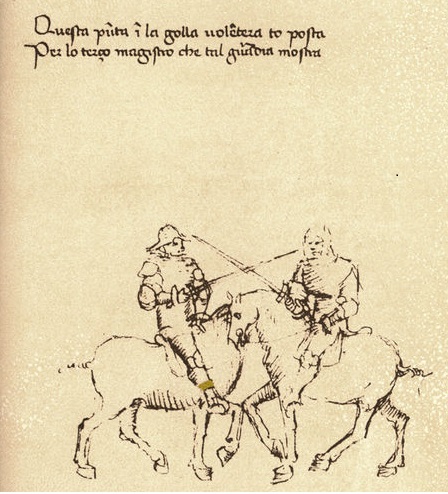 Questa pũta ĩ la golla volẽtera to posta
Per lo terço magistro che tal gũadia mostra